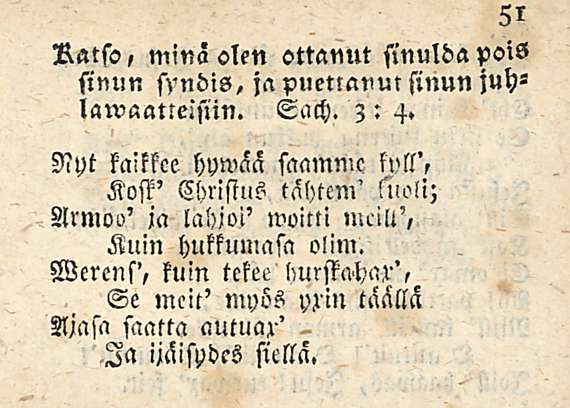 51
Katso, minä olen ottanut sinulda pois
sinun syndis, ja puettanut sinun juh-
lawaatteisiin. Sach. 3: 4.
Nyt kaikkee hywää saamme kyll',
Kosk' Christus tähtem' kuoli;
Armoo' ja lahjoi' woitti meill',
Kuin hukkumasa olim.
Werens', kuin tekee hurskahax',
Se meit' myös yxin täällä
Ajasa saatta autuax'
Ja ijäisydes siellä.